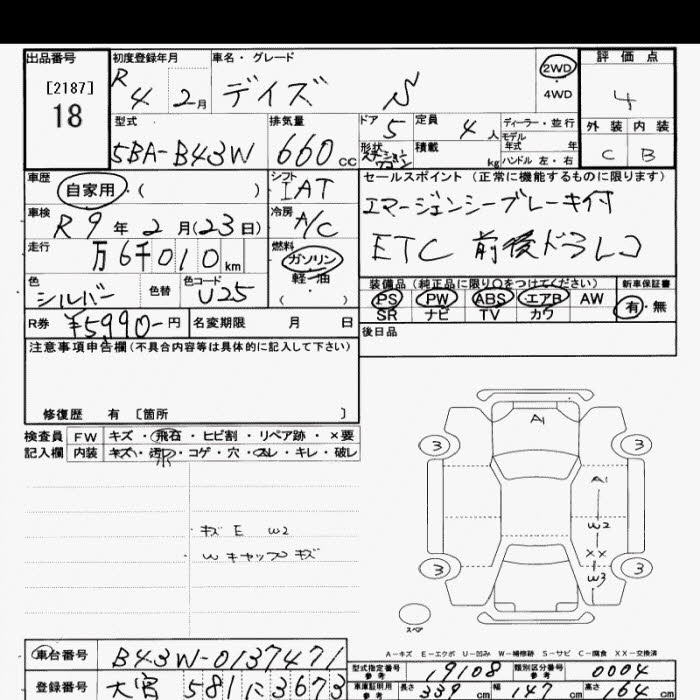 出品番号 初度登録年月 車名・グレード 評価点
[2187] R4 2月 デイズ S 2WD 4
18 4WD
型式 排気量 ドア 定員 ディーラー・並行 外装 内装
5BA-B43W 660cc 5 4人 モデル年式 年 C B
形状 積載 kg ハンドル 左・右
車歴 シフト セールスポイント (正常に機能するものに限ります)
自家用・( ) IAT エマージェンシーブレーキ付
車検 冷房
R9年2月(23日) A/C ETC 前後ドラレコ
走行 燃料
万6千010km ガソリン・軽・油・( )
色 色替 色コード 装備品 (純正品に限り○をつけてください) 新車保証書
シルバー U25 PS PW ABS エアB AW 有・無
SR ナビ TV カワ
R券 ¥5990-円 名変期限 月 日 後日品
注意事項申告欄(不具合内容等は具体的に記入して下さい)
修復歴 有 〔箇所 〕
検査員 FW キズ・飛石・ヒビ割・リペア跡・×要
記入欄 内装 キズ・汚れ・コゲ・穴・スレ・キレ・破レ
A1
3 3
A1
キズ E W2
W2
W キャップ キズ
XX
3 W3 3
スペア
A-キズ E-エクボ U-凹み W-補修跡 S-サビ C-腐食 XX-交換済
車台番号 B43W-0137471 型式指定番号 参考 19108 類別区分番号 参考 0004
登録番号 大宮 581 に 3673 車庫証明用 参考 長さ 339cm 幅 147cm 高さ 164cm